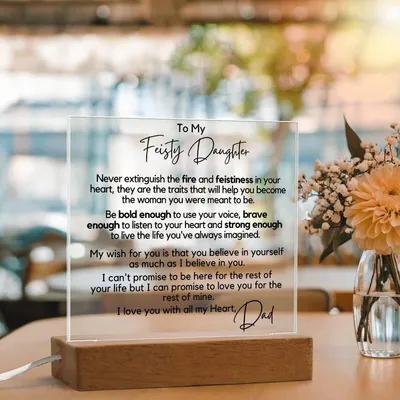 To My
Feisty Daughter
Never extinguish the fire and feistiness in your
heart, they are the traits that will help you become
the woman you were meant to be.
Be bold enough to use your voice, brave
enough to listen to your heart and strong enough
to live the life you've always imagined.
My wish for you is that you believe in yourself
as much as I believe in you.
I can't promise to be here for the rest of
your life but I can promise to love you for the
rest of mine.
I love you with all my Heart, Dad